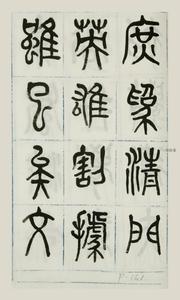 庶爲清門
英雄割據
雖已矣文